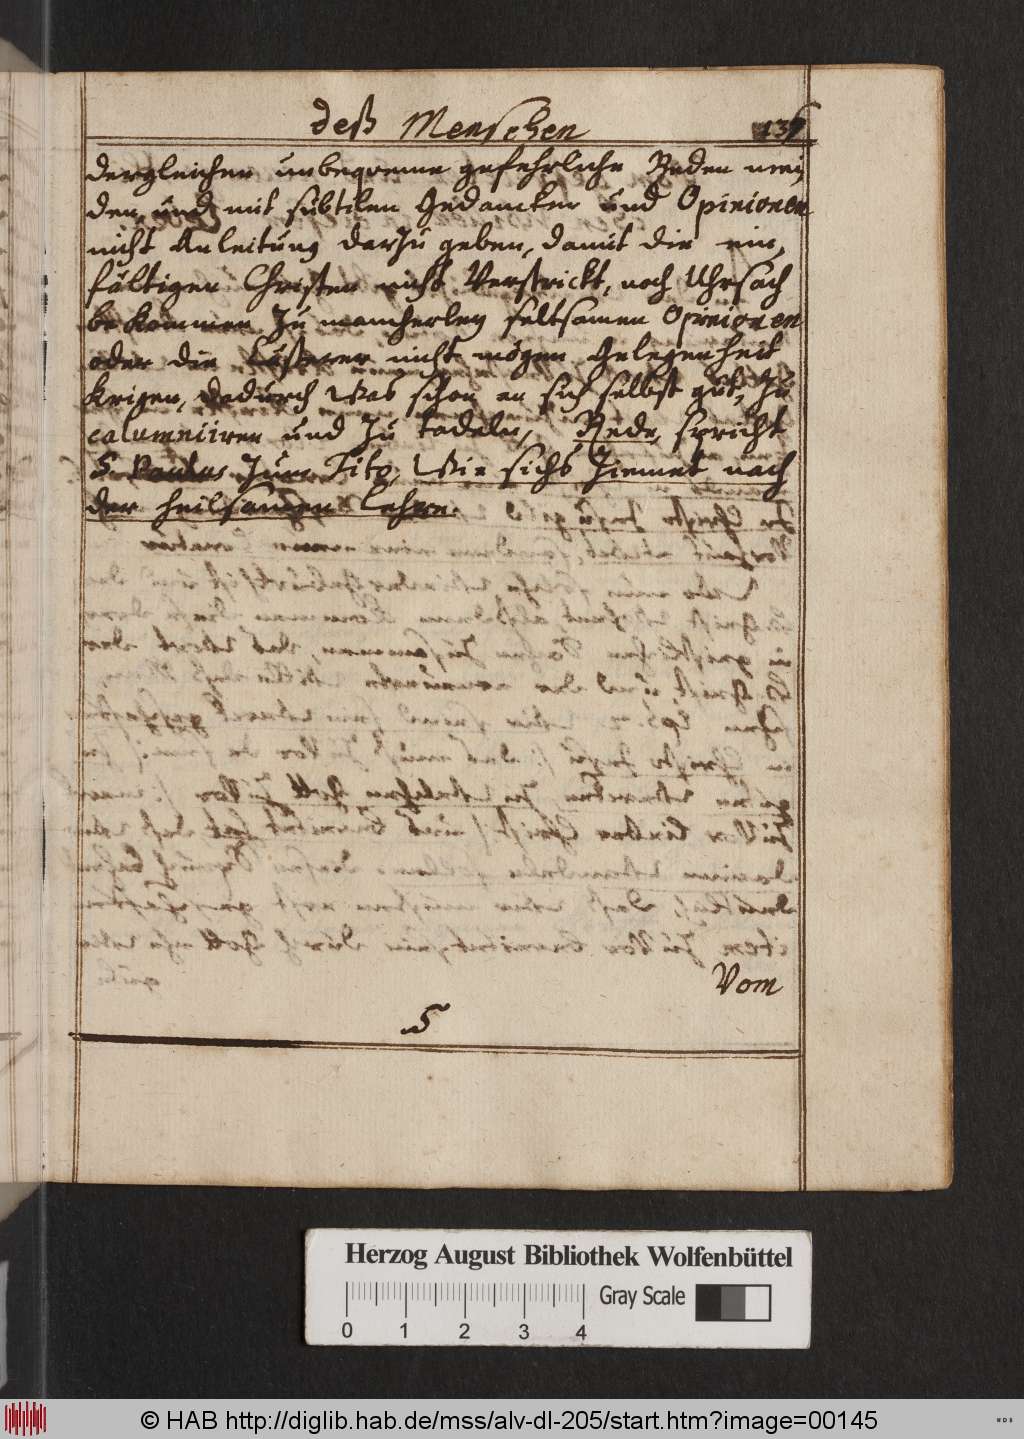 deß Menschen 137
dergleichen unbequeme gefehrliche Reden mey
den, und mit subtilen Gedancken und Opinionen
nicht Anleitung darzu geben, damit die ein,
fältigen Christen nicht Verstrickt, noch Uhrsach
bekommen zu mancherley seltsamen Opinionen
oder die Lästerer nicht mögen Gelegenheit
krigen, dadurch Was schon an sich selbst gut, zu
calumniiren und zu tadeln, Rede, spricht
S. Paulus zum Tito, Wie sichs ziemet nach
der heilsamen Lehre.
Vom
S
Herzog August Bibliothek Wolfenbüttel
Gray Scale
0 1 2 3 4
© HAB http://diglib.hab.de/mss/alv-dl-205/start.htm?image=00145